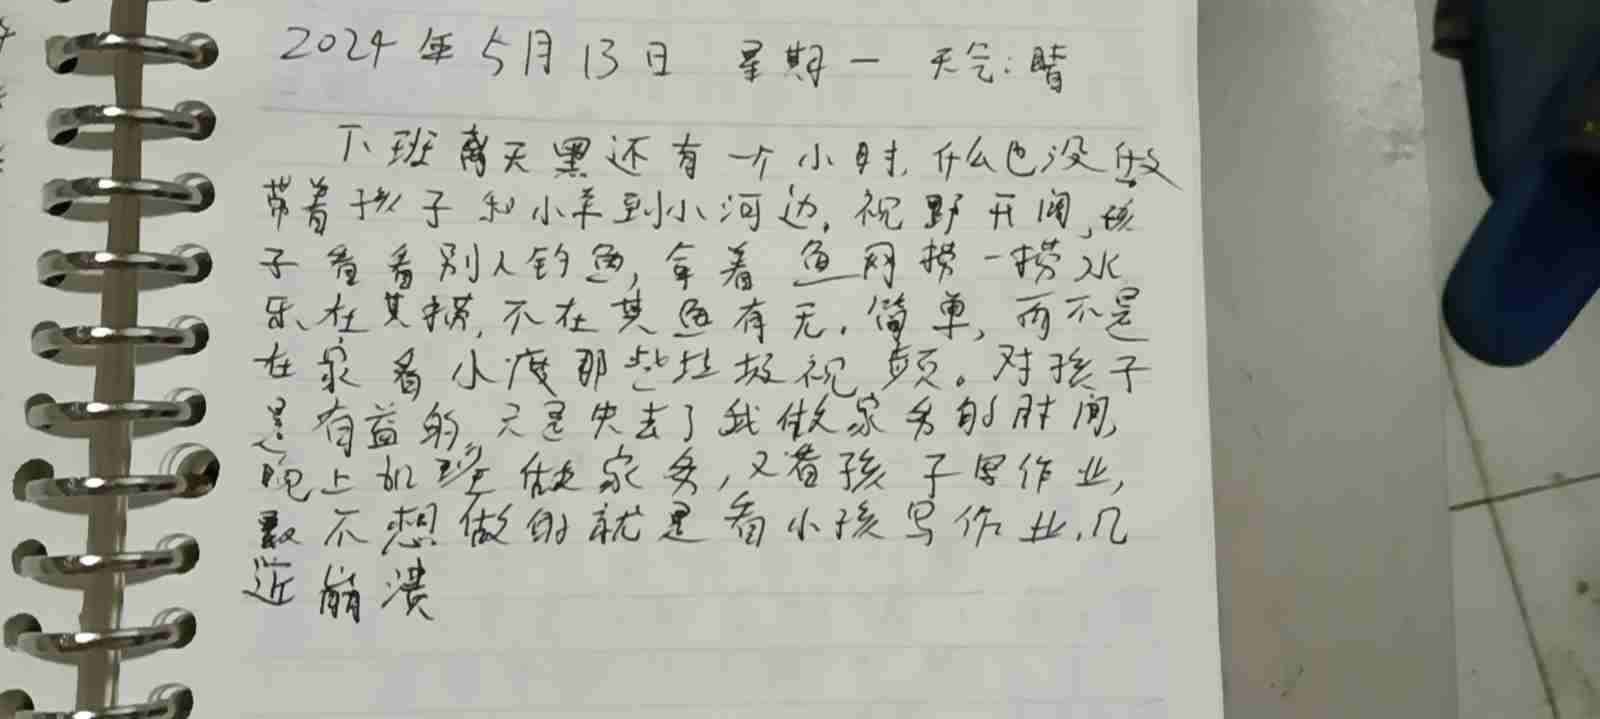 2024年5月13日 星期一 天气:晴
下班离天黑还有一个小时,什么也没做
带着孩子和小羊到小河边,视野开阔,孩
子看看别人钓鱼,拿着鱼网捞一捞水
乐在其捞,不在其鱼有无.简单,而不是
在家看小度那些垃圾视频。对孩子
是有益的,只是失去了我做家务的时间,
晚上加班做家务,又看孩子写作业,
最不想做的就是看小孩写作业,几
近崩溃